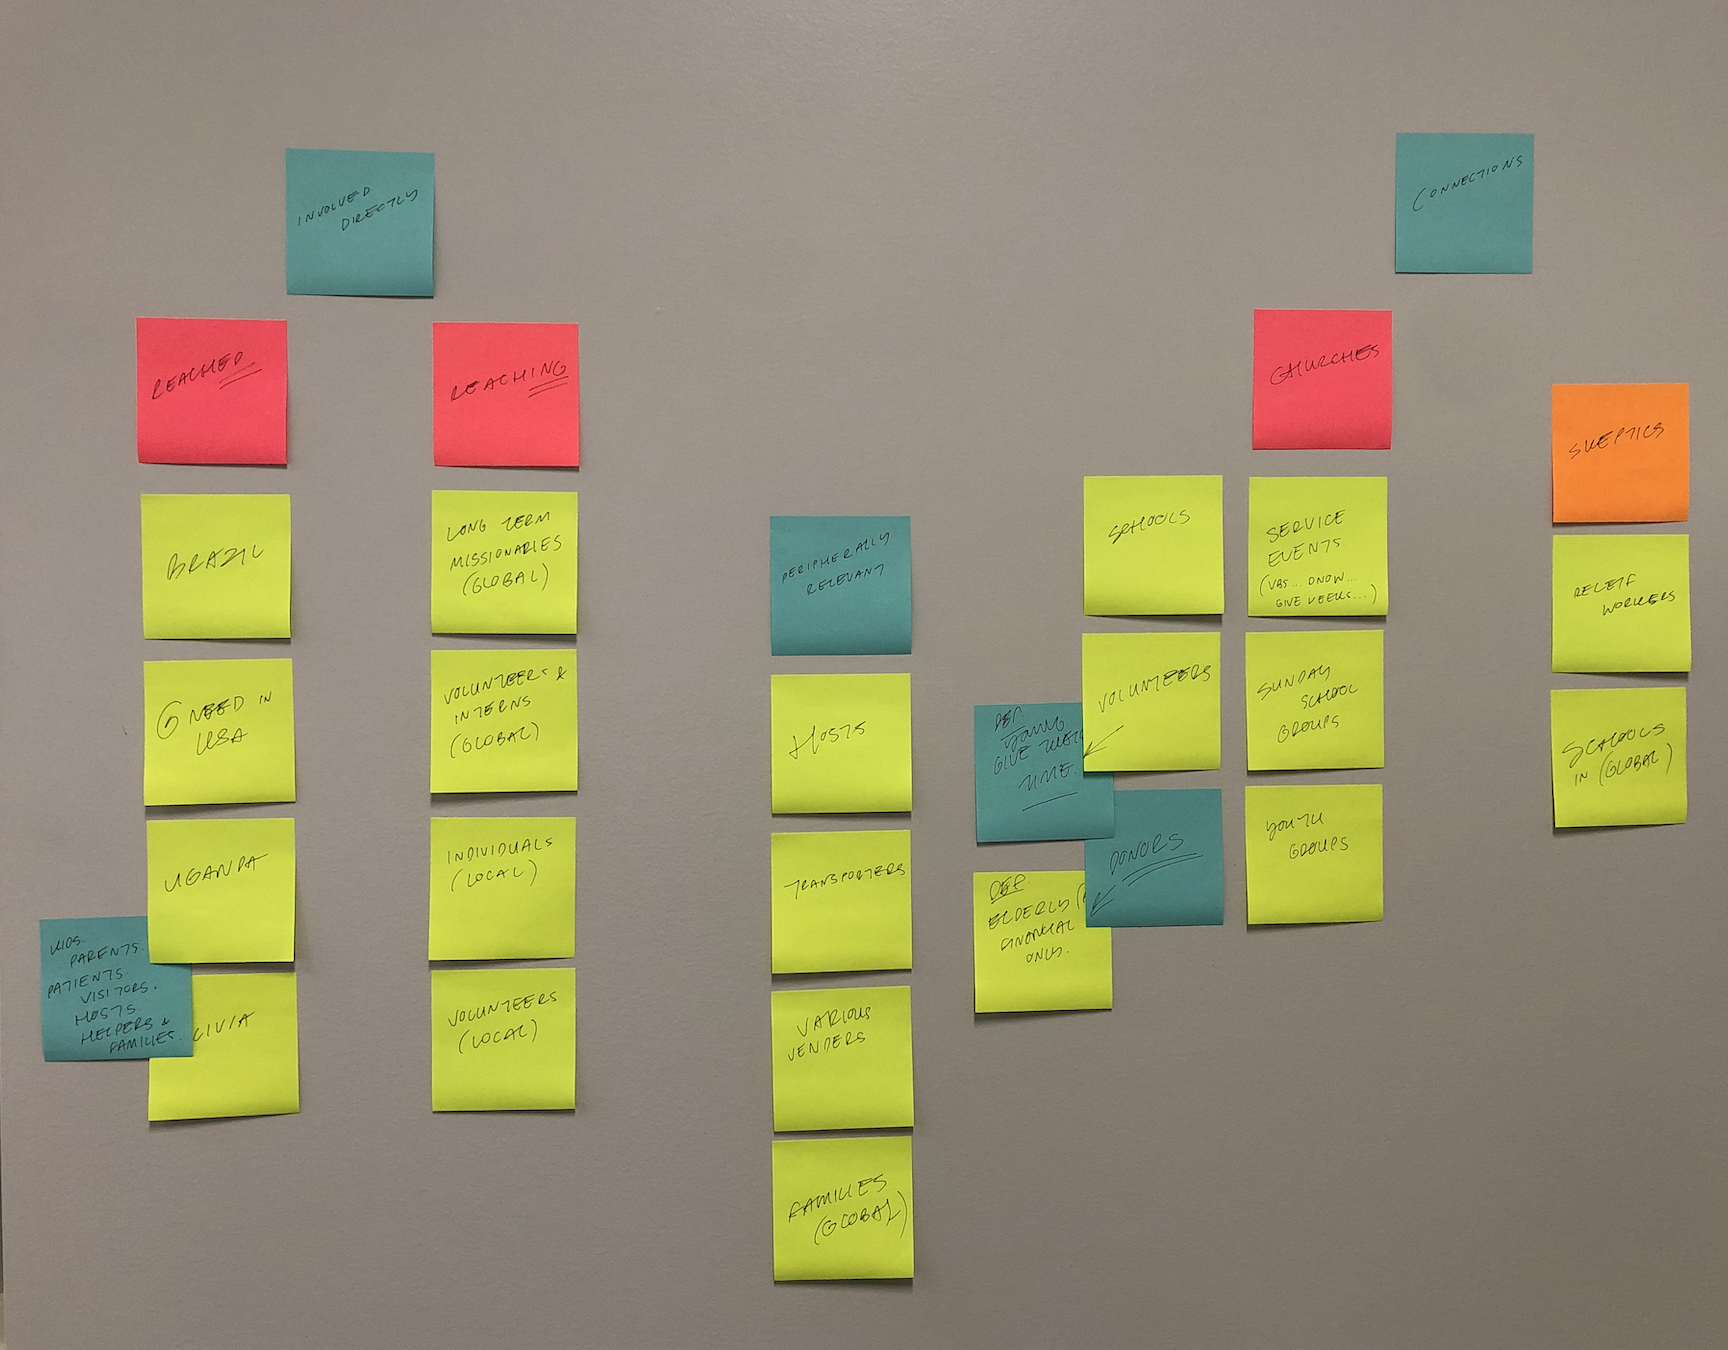 INVOLVED
DIRECTLY
REACHED
BRAZIL
NEED IN
USA
UGANDA
KIDS.
PARENTS.
PATIENTS.
VISITORS.
HOSTS.
HELPERS &
FAMILIES.
LIVIA
REACHING
LONG TERM
MISSIONARIES
(GLOBAL)
VOLUNTEERS &
INTERNS
(GLOBAL)
INDIVIDUALS
(LOCAL)
VOLUNTEERS
(LOCAL)
PERIPHERALLY
RELEVANT
HOSTS
TRANSPORTERS
VARIOUS
VENDERS
FAMILIES
(GLOBAL)
CONNECTIONS
CHURCHES
SCHOOLS
VOLUNTEERS
DEF.
YOUNG
GIVE THEIR
TIME.
DONORS
DEF.
ELDERLY
FINANCIAL
ONLY.
SERVICE
EVENTS
(VBS... ONOW...
GIVE WEEKS...)
SUNDAY
SCHOOL
GROUPS
YOUTH
GROUPS
SKEPTICS
RELEIF
WORKERS
SCHOOLS
IN (GLOBAL)